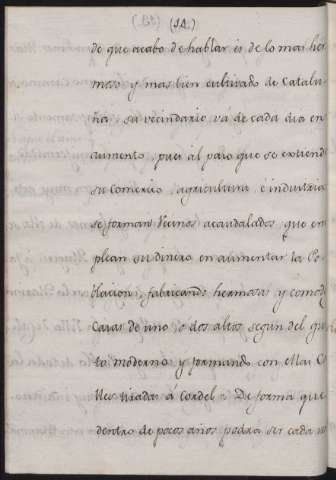 (12.)
de que acabo de hablar es de lo mas her
moso y mas bien cultivado de Catalu-
ña, su vecindario vá de cada dia en
aumento, pues al paso que se extiende
su comercio, agricultura, é industria
se forman Vecinos acaudalados, que em
plean su dinero en aumentar la Po
blacion, fabricando hermosas y comod
Casas de uno, o dos altos segun del gus
to moderno, y formando con ellas Ca
lles tiradas á Cordel: De forma que
dentro de pocos años podrá ser cada